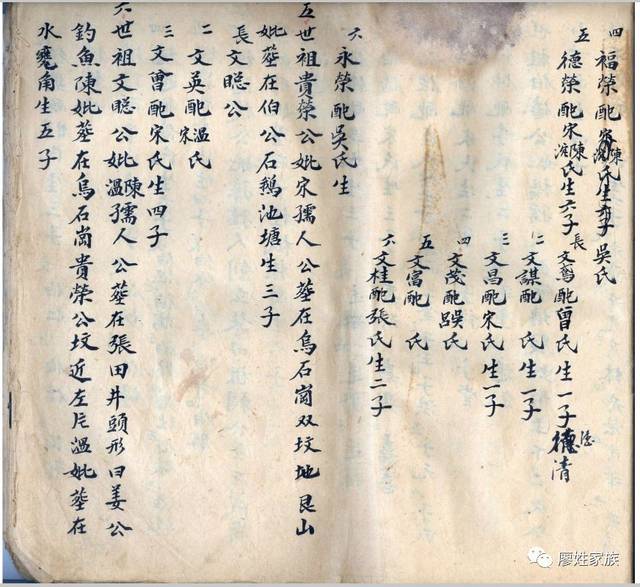 四 福榮配 氏生 吳氏
五 德榮配宋陳氏生六子
長 文鸞配曾氏生一子德清
二 文謀配 氏生一子
三 文昌配宋氏生一子
四 文茂配吳氏
五 文富配 氏
六 文桂配張氏生二子
六 永榮配吳氏生
五世祖貴榮公妣宋孺人公塟在烏石崗双坟地艮山
妣塟在伯公石鵝池塘生三子
長 文聪公
二 文英配温宋氏
三 文曾配宋氏生四子
六世祖文聪公妣温陳孺人公塟在張田井頭形曰姜公
釣魚陳妣塟在烏石崗貴榮公坟近左片温妣塟在
水 角生五子
廖姓家族